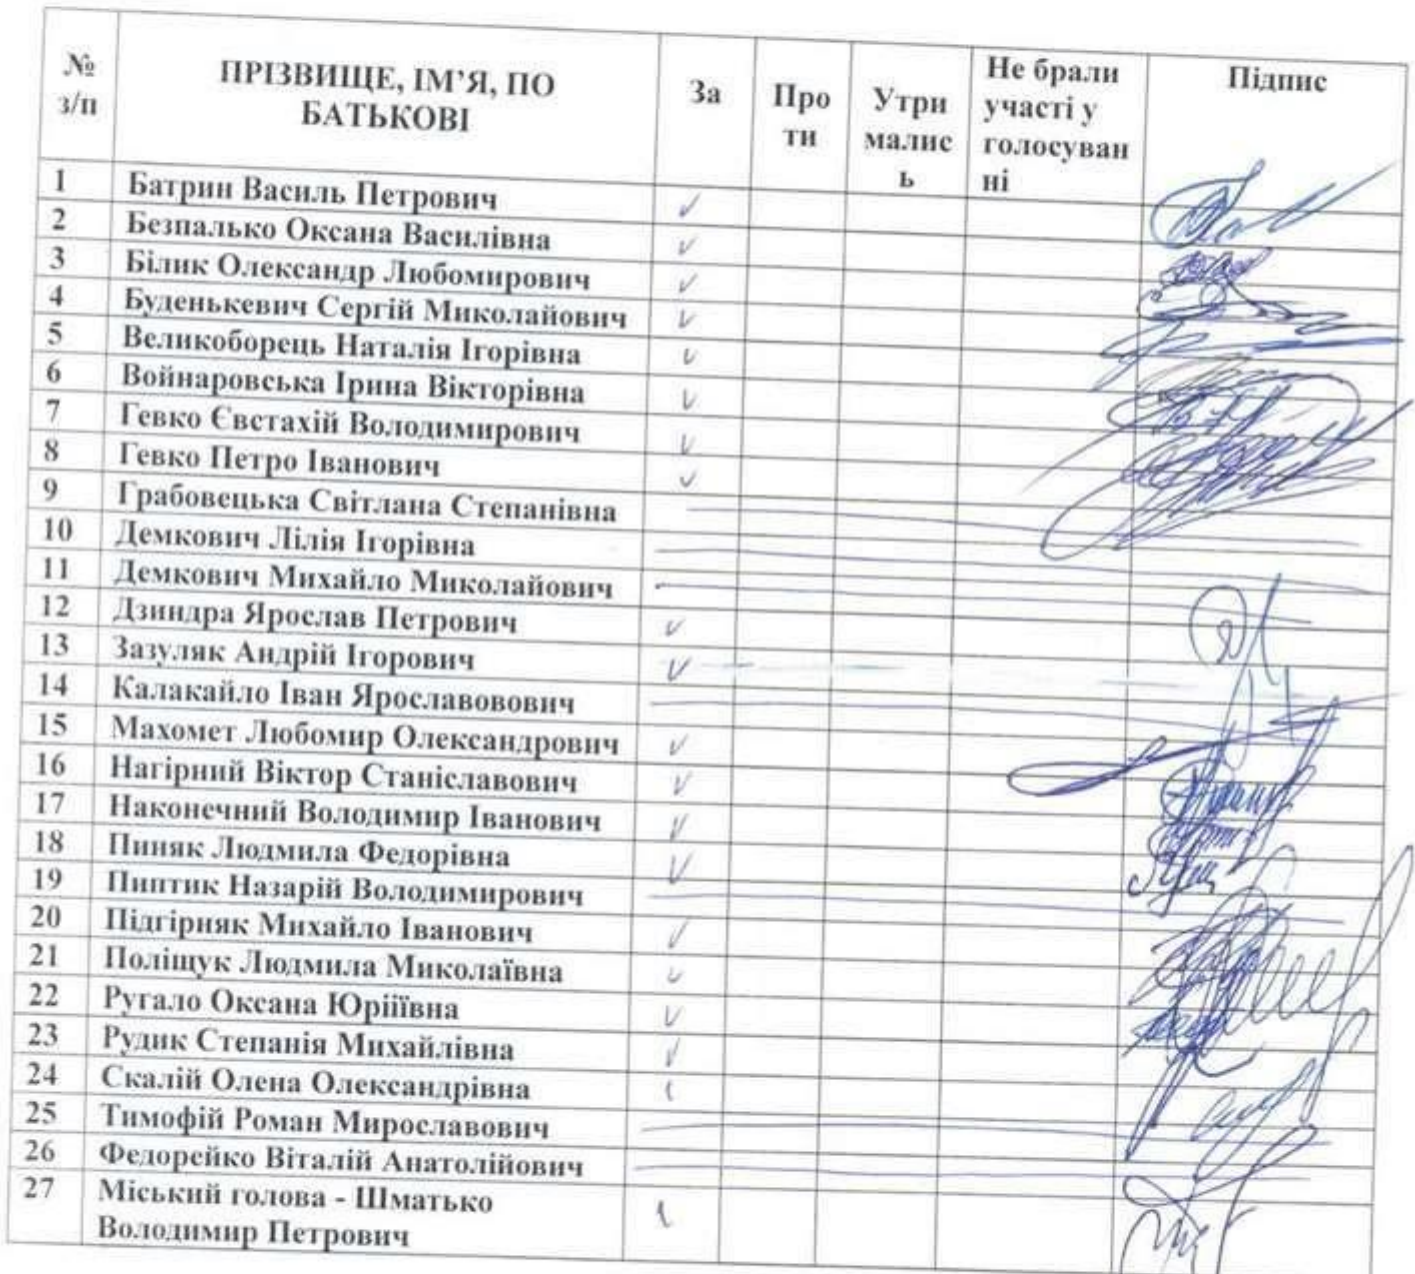 № з/п ПРІЗВИЩЕ, ІМ’Я, ПО БАТЬКОВІ За Про ти Утри малис ь Не брали участі у голосуван ні Підпис
1 Батрин Василь Петрович
2 Безпалько Оксана Василівна
3 Білик Олександр Любомирович
4 Буденькевич Сергій Миколайович
5 Великоборець Наталія Ігорівна
6 Войнаровська Ірина Вікторівна
7 Гевко Євстахій Володимирович
8 Гевко Петро Іванович
9 Грабовецька Світлана Степанівна
10 Демкович Лілія Ігорівна
11 Демкович Михайло Миколайович
12 Дзиндра Ярослав Петрович
13 Зазуляк Андрій Ігорович
14 Калакайло Іван Ярославовович
15 Махомет Любомир Олександрович
16 Нагірний Віктор Станіславович
17 Наконечний Володимир Іванович
18 Пиняк Людмила Федорівна
19 Пиптик Назарій Володимирович
20 Підгірняк Михайло Іванович
21 Поліщук Людмила Миколаївна
22 Ругало Оксана Юріїївна
23 Рудик Степанія Михайлівна
24 Скалій Олена Олександрівна
25 Тимофій Роман Мирославович
26 Федорейко Віталій Анатолійович
27 Міський голова - Шматько
Володимир Петрович